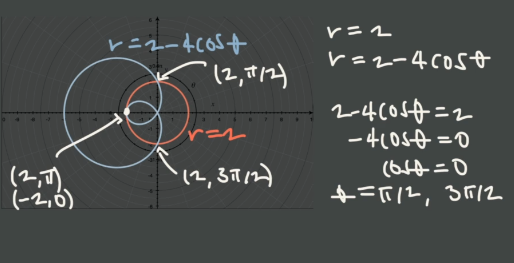 r=2-4cosθ
(2,π/2)
r=2
(2,π)
(-2,0)
(2,3π/2)
r=2
r=2-4cosθ
2-4cosθ=2
-4cosθ=0
cosθ=0
θ=π/2, 3π/2